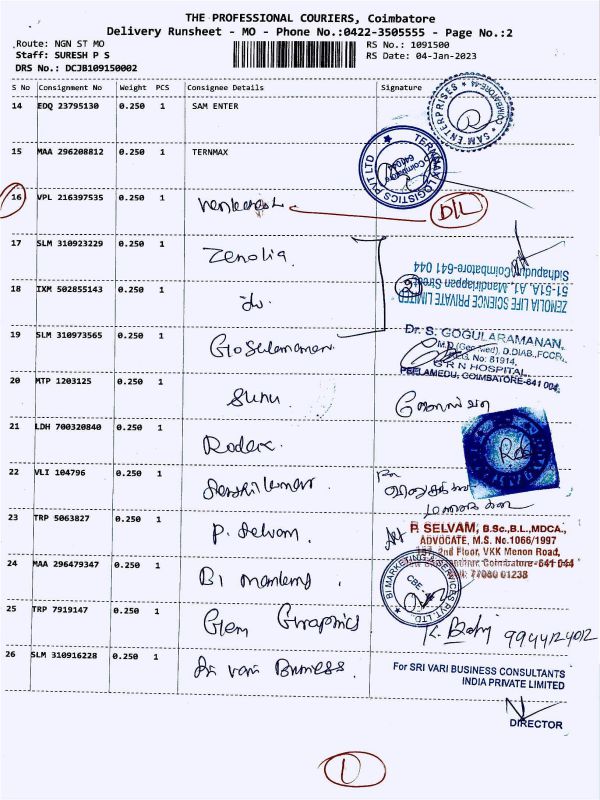 THE PROFESSIONAL COURIERS, Coimbatore
Delivery Runsheet - MO - Phone No.:0422-3505555 - Page No.:2
Route: NGN ST MO
RS No.: 1091500
Staff: SURESH P S
RS Date: 04-Jan-2023
DRS No.: DCJB109150002
S No Consignment No Weight PCS Consignee Details Signature
14 EDQ 23795130 0.250 1 SAM ENTER
SAM ENTERPRISES ★ COIMBATORE-44 ★
15 MAA 296208812 0.250 1 TERNMAX
TERNMAX LOGISTICS PVT LTD ★
Coimbatore
641044
16 VPL 216397535 0.250 1 Venkatesh
D/L
17 SLM 310923229 0.250 1 Zenolia
ZENOLIA LIFE SCIENCE PRIVATE LIMITED
51-51A, A1, Mandiriappan Street
Sidhapudur, Coimbatore-641 044
18 IXM 502855143 0.250 1 Do
2
19 SLM 310973565 0.250 1
Dr. S. GOGULARAMANAN,
M.D.(Gen Med), D.DIAB.,FCCP.,
REG. No: 81914,
G R N HOSPITAL,
PEELAMEDU, COIMBATORE-641 004.
20 MTP 1203125 0.250 1
21 LDH 700320840 0.250 1
22 VLI 104796 0.250 1
23 TRP 5063827 0.250 1 P. Selvam.
P. SELVAM, B.Sc.,B.L.,MDCA.,
ADVOCATE, M.S. No.1066/1997
2nd Floor, VKK Menon Road,
Coimbatore-641 044
Cell: 77080 01238
24 MAA 296479347 0.250 1
BI MARKETING & SERVICES PVT. LTD. ★
CBE
25 TRP 7919147 0.250 1 Gem Graphics
9944124012
26 SLM 310916228 0.250 1 Sri Vari Business.
For SRI VARI BUSINESS CONSULTANTS
INDIA PRIVATE LIMITED
DIRECTOR
1